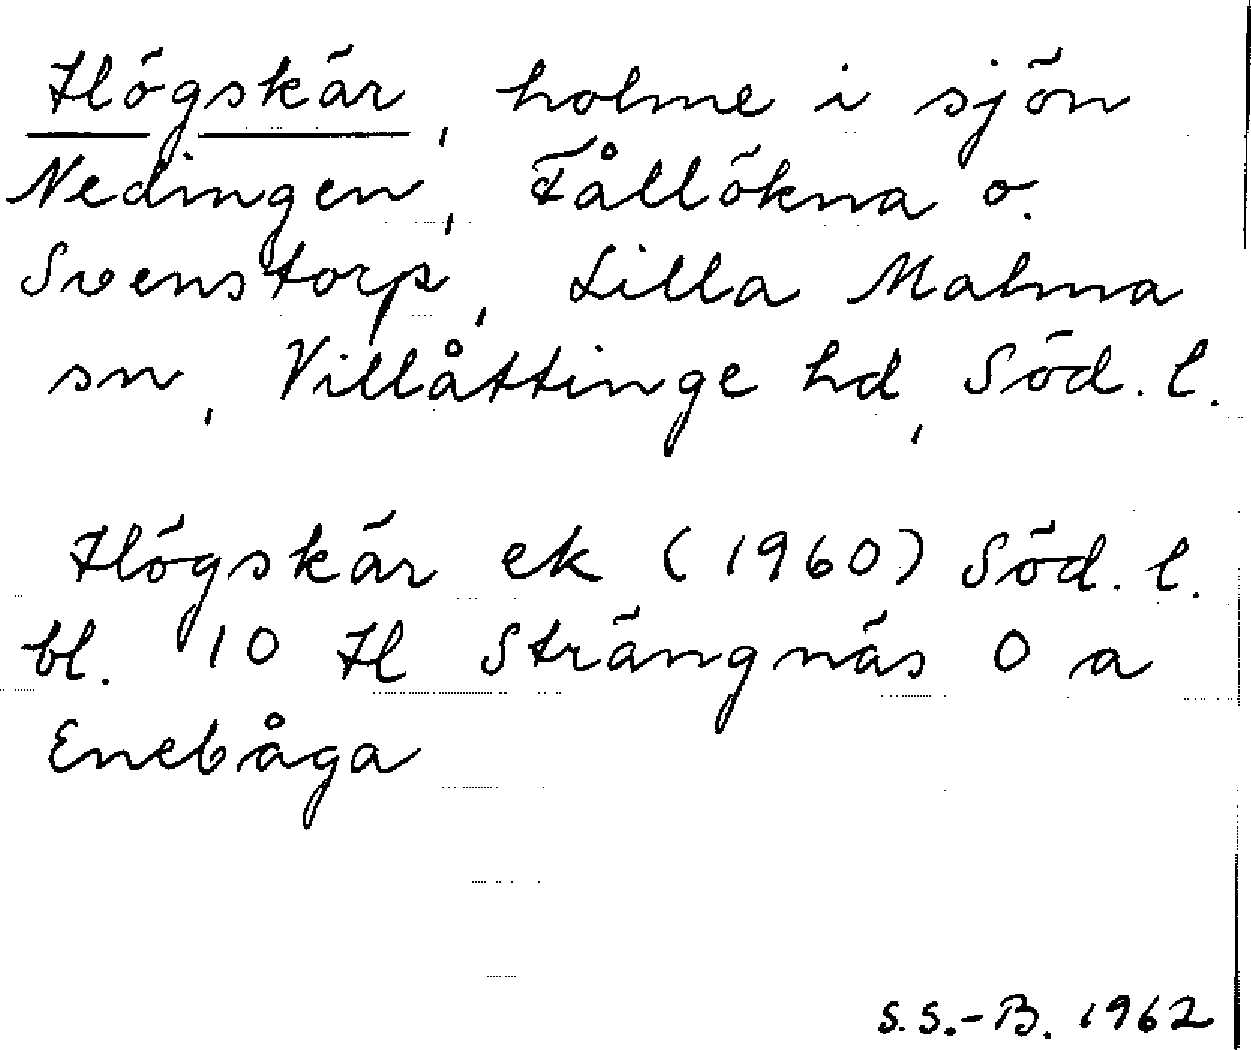 Högskär, holme i sjön
Nedingen, Fållökna o.
Svenstorp, Lilla Malma
sn, Villåttinge hd, Söd. l.
Högskär ek (1960) Söd. l.
bl. 10 H Strängnäs 0 a
Enebåga
S.S.-B. 1962